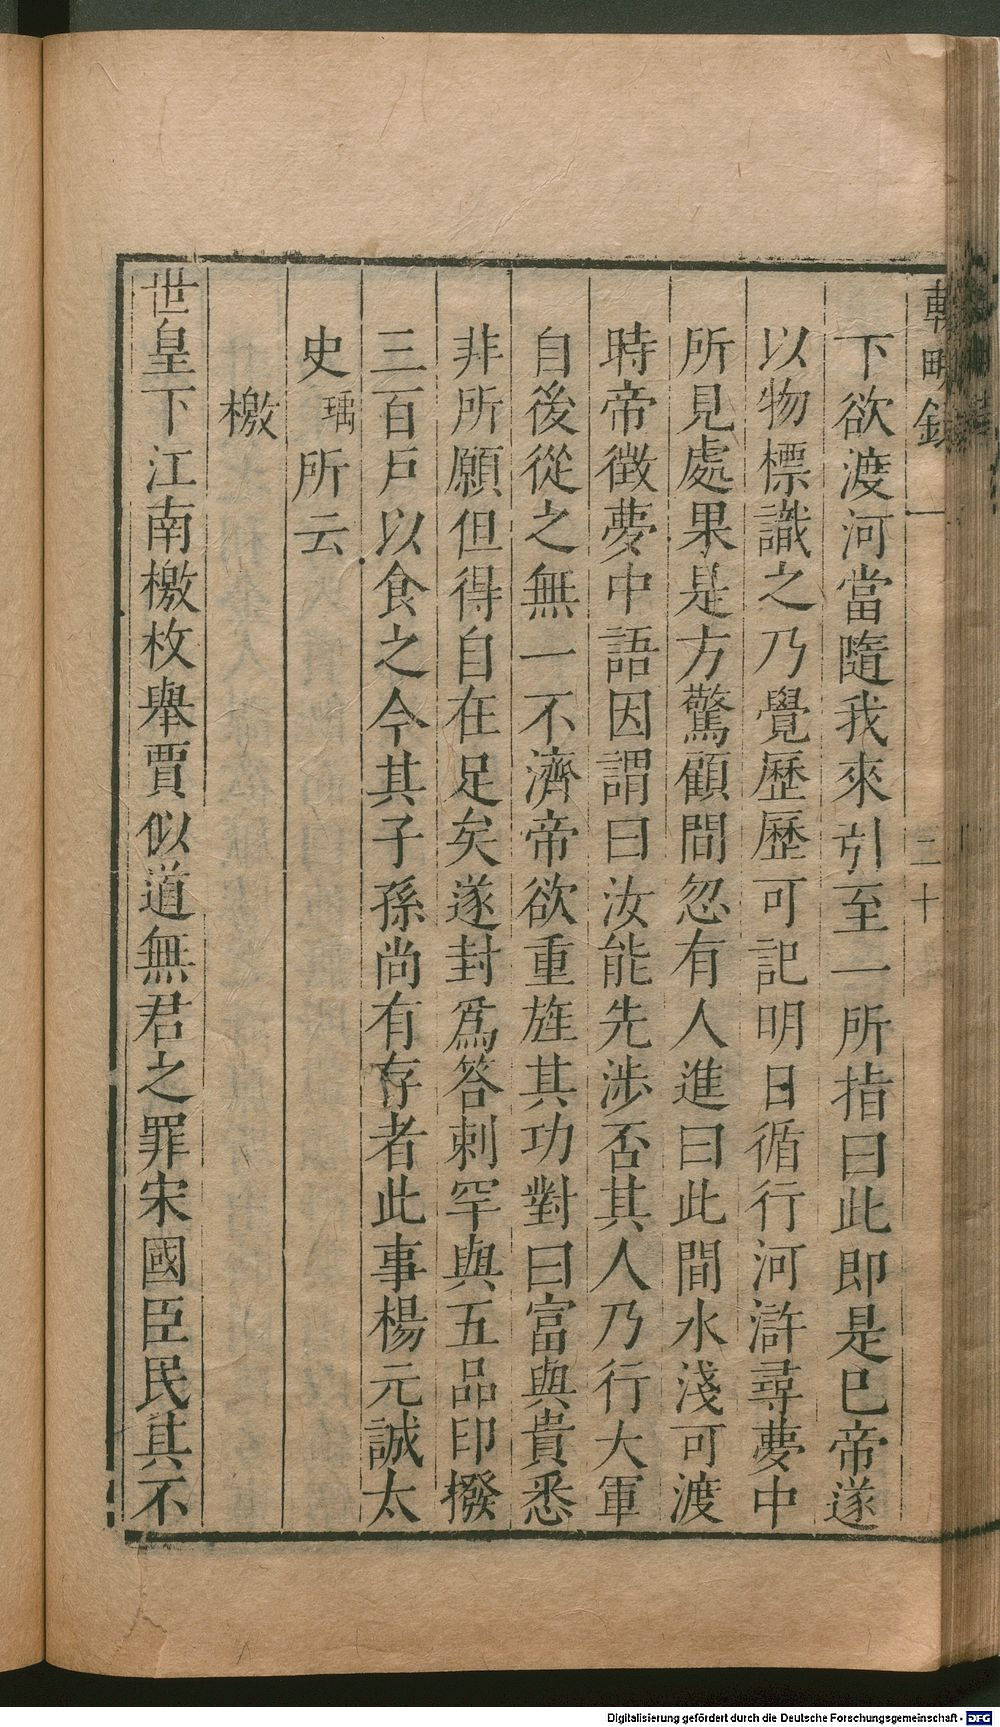 輟畊錄 一 二十
下欲渡河當隨我來引至一所指曰此即是已帝遂
以物標識之乃覺歷歷可記明日循行河滸尋夢中
所見處果是方驚顧間忽有人進曰此間水淺可渡
時帝徴夢中語因謂曰汝能先涉否其人乃行大軍
自後從之無一不濟帝欲重旌其功對曰富與貴悉
非所願但得自在足矣遂封爲答剌罕與五品印撥
三百戶以食之今其子孫尚有存者此事楊元誠太
史瑀所云
檄
世皇下江南檄枚舉賈似道無君之罪宋國臣民其不
Digitalisierung gefördert durch die Deutsche Forschungsgemeinschaft - DFG